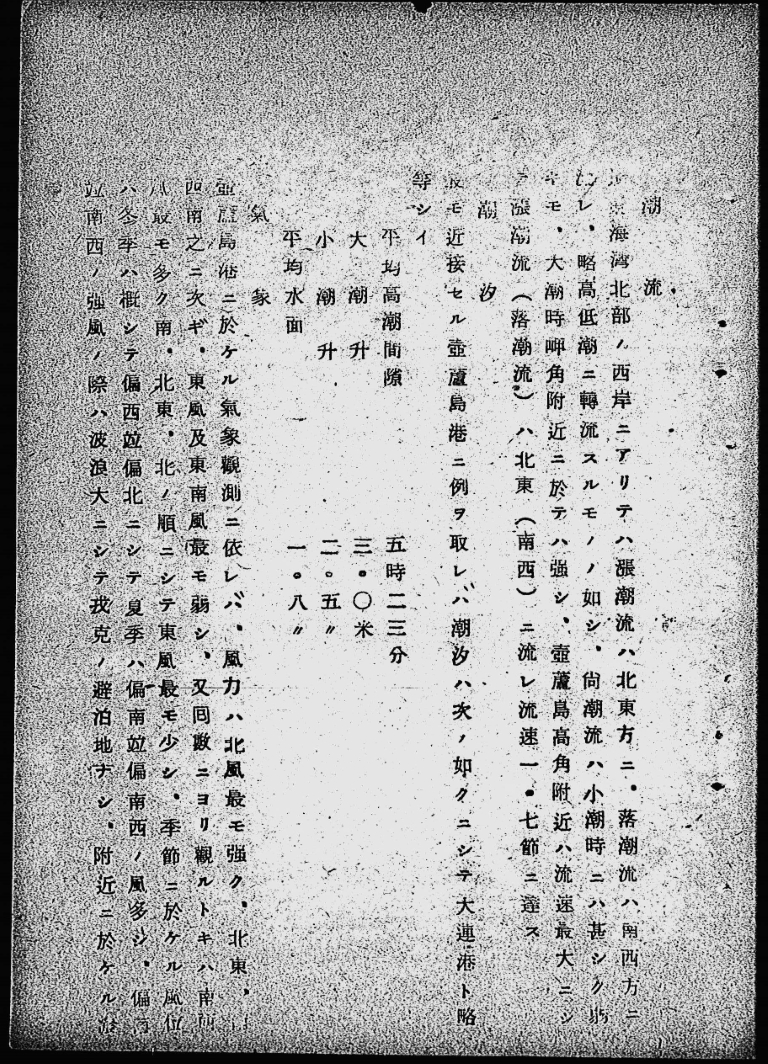 潮流
海灣北部ノ西岸ニアリテハ漲潮流ハ北東方ニ、落潮流ハ南西方ニ
レ、略高低潮ニ轉流スルモノノ如シ、尙潮流ハ小潮時ニハ甚シク
モ、大潮時岬角附近ニ於テハ强シ、壺蘆島高角附近ハ流速最大ニシ
漲潮流（落潮流）ハ北東（南西）ニ流レ流速一・七節ニ達ス
潮汐
最モ近接セル壺蘆島港ニ例ヲ取レバ潮汐ハ次ノ如クニシテ大連港ト略
等シイ
平均高潮間隙 五時二三分
大潮升 三・〇米
小潮升 二・五〃
平均水面 一・八〃
氣象
壺蘆島港ニ於ケル氣象觀測ニ依レバ、風力ハ北風最モ强ク、北東、
西南之ニ次ギ、東風及東南風最モ弱シ、又回數ニヨリ觀ルトキハ南西
最モ多ク南、北東、北ノ順ニシテ東風最モ少シ、季節ニ於ケル風位
ハ冬季ハ概シテ偏西竝偏北ニシテ夏季ハ偏南竝偏南西ノ風多シ、偏
竝南西ノ强風ノ際ハ波浪大ニシテ戎克ノ避泊地ナシ、附近ニ於ケル